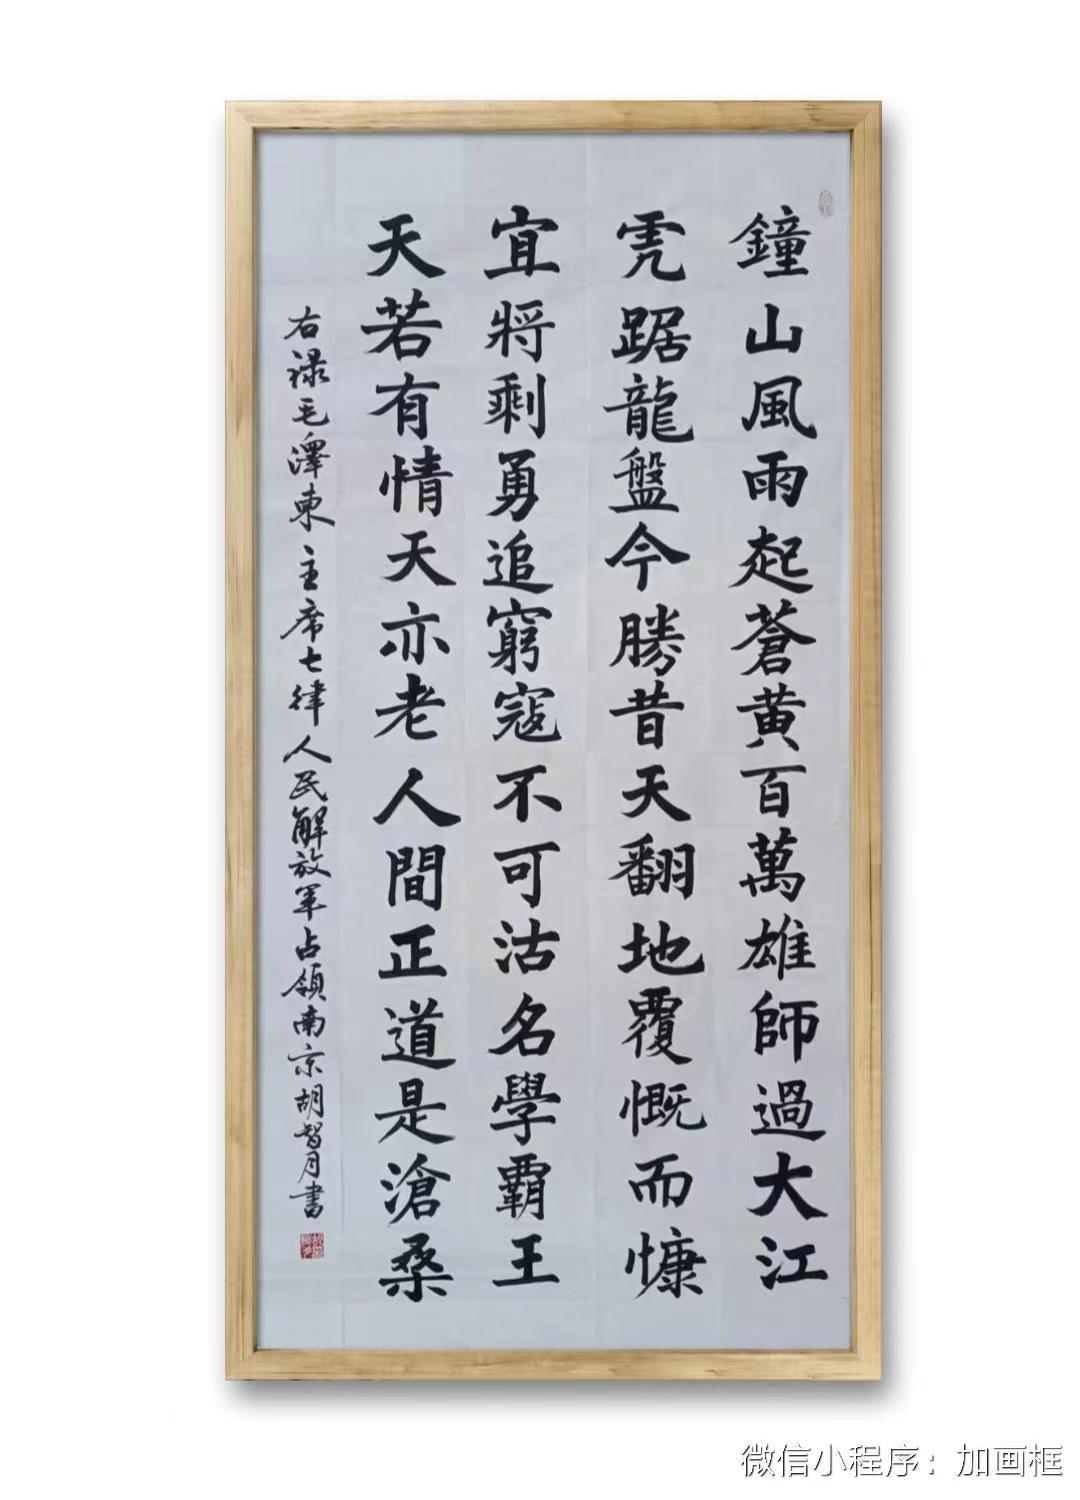 鐘山風雨起蒼黄百萬雄師過大江
虎踞龍盤今勝昔天翻地覆慨而慷
宜將剩勇追窮寇不可沽名學霸王
天若有情天亦老人間正道是滄桑
右禄毛澤東主席七律人民解放軍占領南京胡智月書
微信小程序：加画框